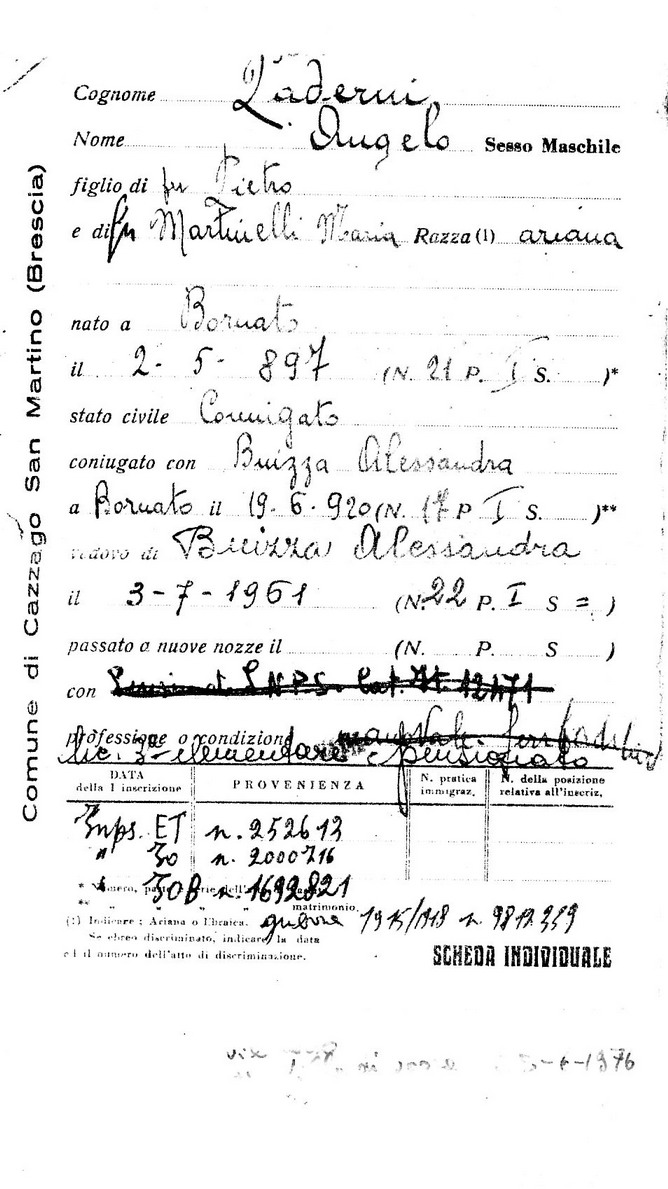 Comune di Cazzago San Martino (Brescia)
Cognome Laderni
Nome Angelo Sesso Maschile
figlio di fu Pietro
e di fu Martinelli Maria Razza (1) ariana
nato a Bornato
il 2 - 5 - 897 (N. 21 P. I S. )*
stato civile Coniugato
coniugato con Buizza Alessandra
a Bornato il 19 - 6 - 920 (N. 17 P I S. )**
vedovo di Buizza Alessandra
il 3 - 7 - 1961 (N. 22 P. I S = )
passato a nuove nozze il (N. P. S )
con I.N.P.S. Cat. 12471
professione o condizione
lic. 3ª elementare pensionato
DATA della I inscrizione PROVENIENZA N. pratica immigraz. N. della posizione relativa all'inscriz.
Inps. ET n. 252613
" Io n. 2000716
" IOB n. 1692821
* Numero, parte e serie dell'
** " " " " matrimonio.
(1) Indicare : Ariana o Ebraica. guerra 1915/1918 n.
Se ebreo discriminato, indicare la data
ed il numero dell'atto di discriminazione.
SCHEDA INDIVIDUALE
1976